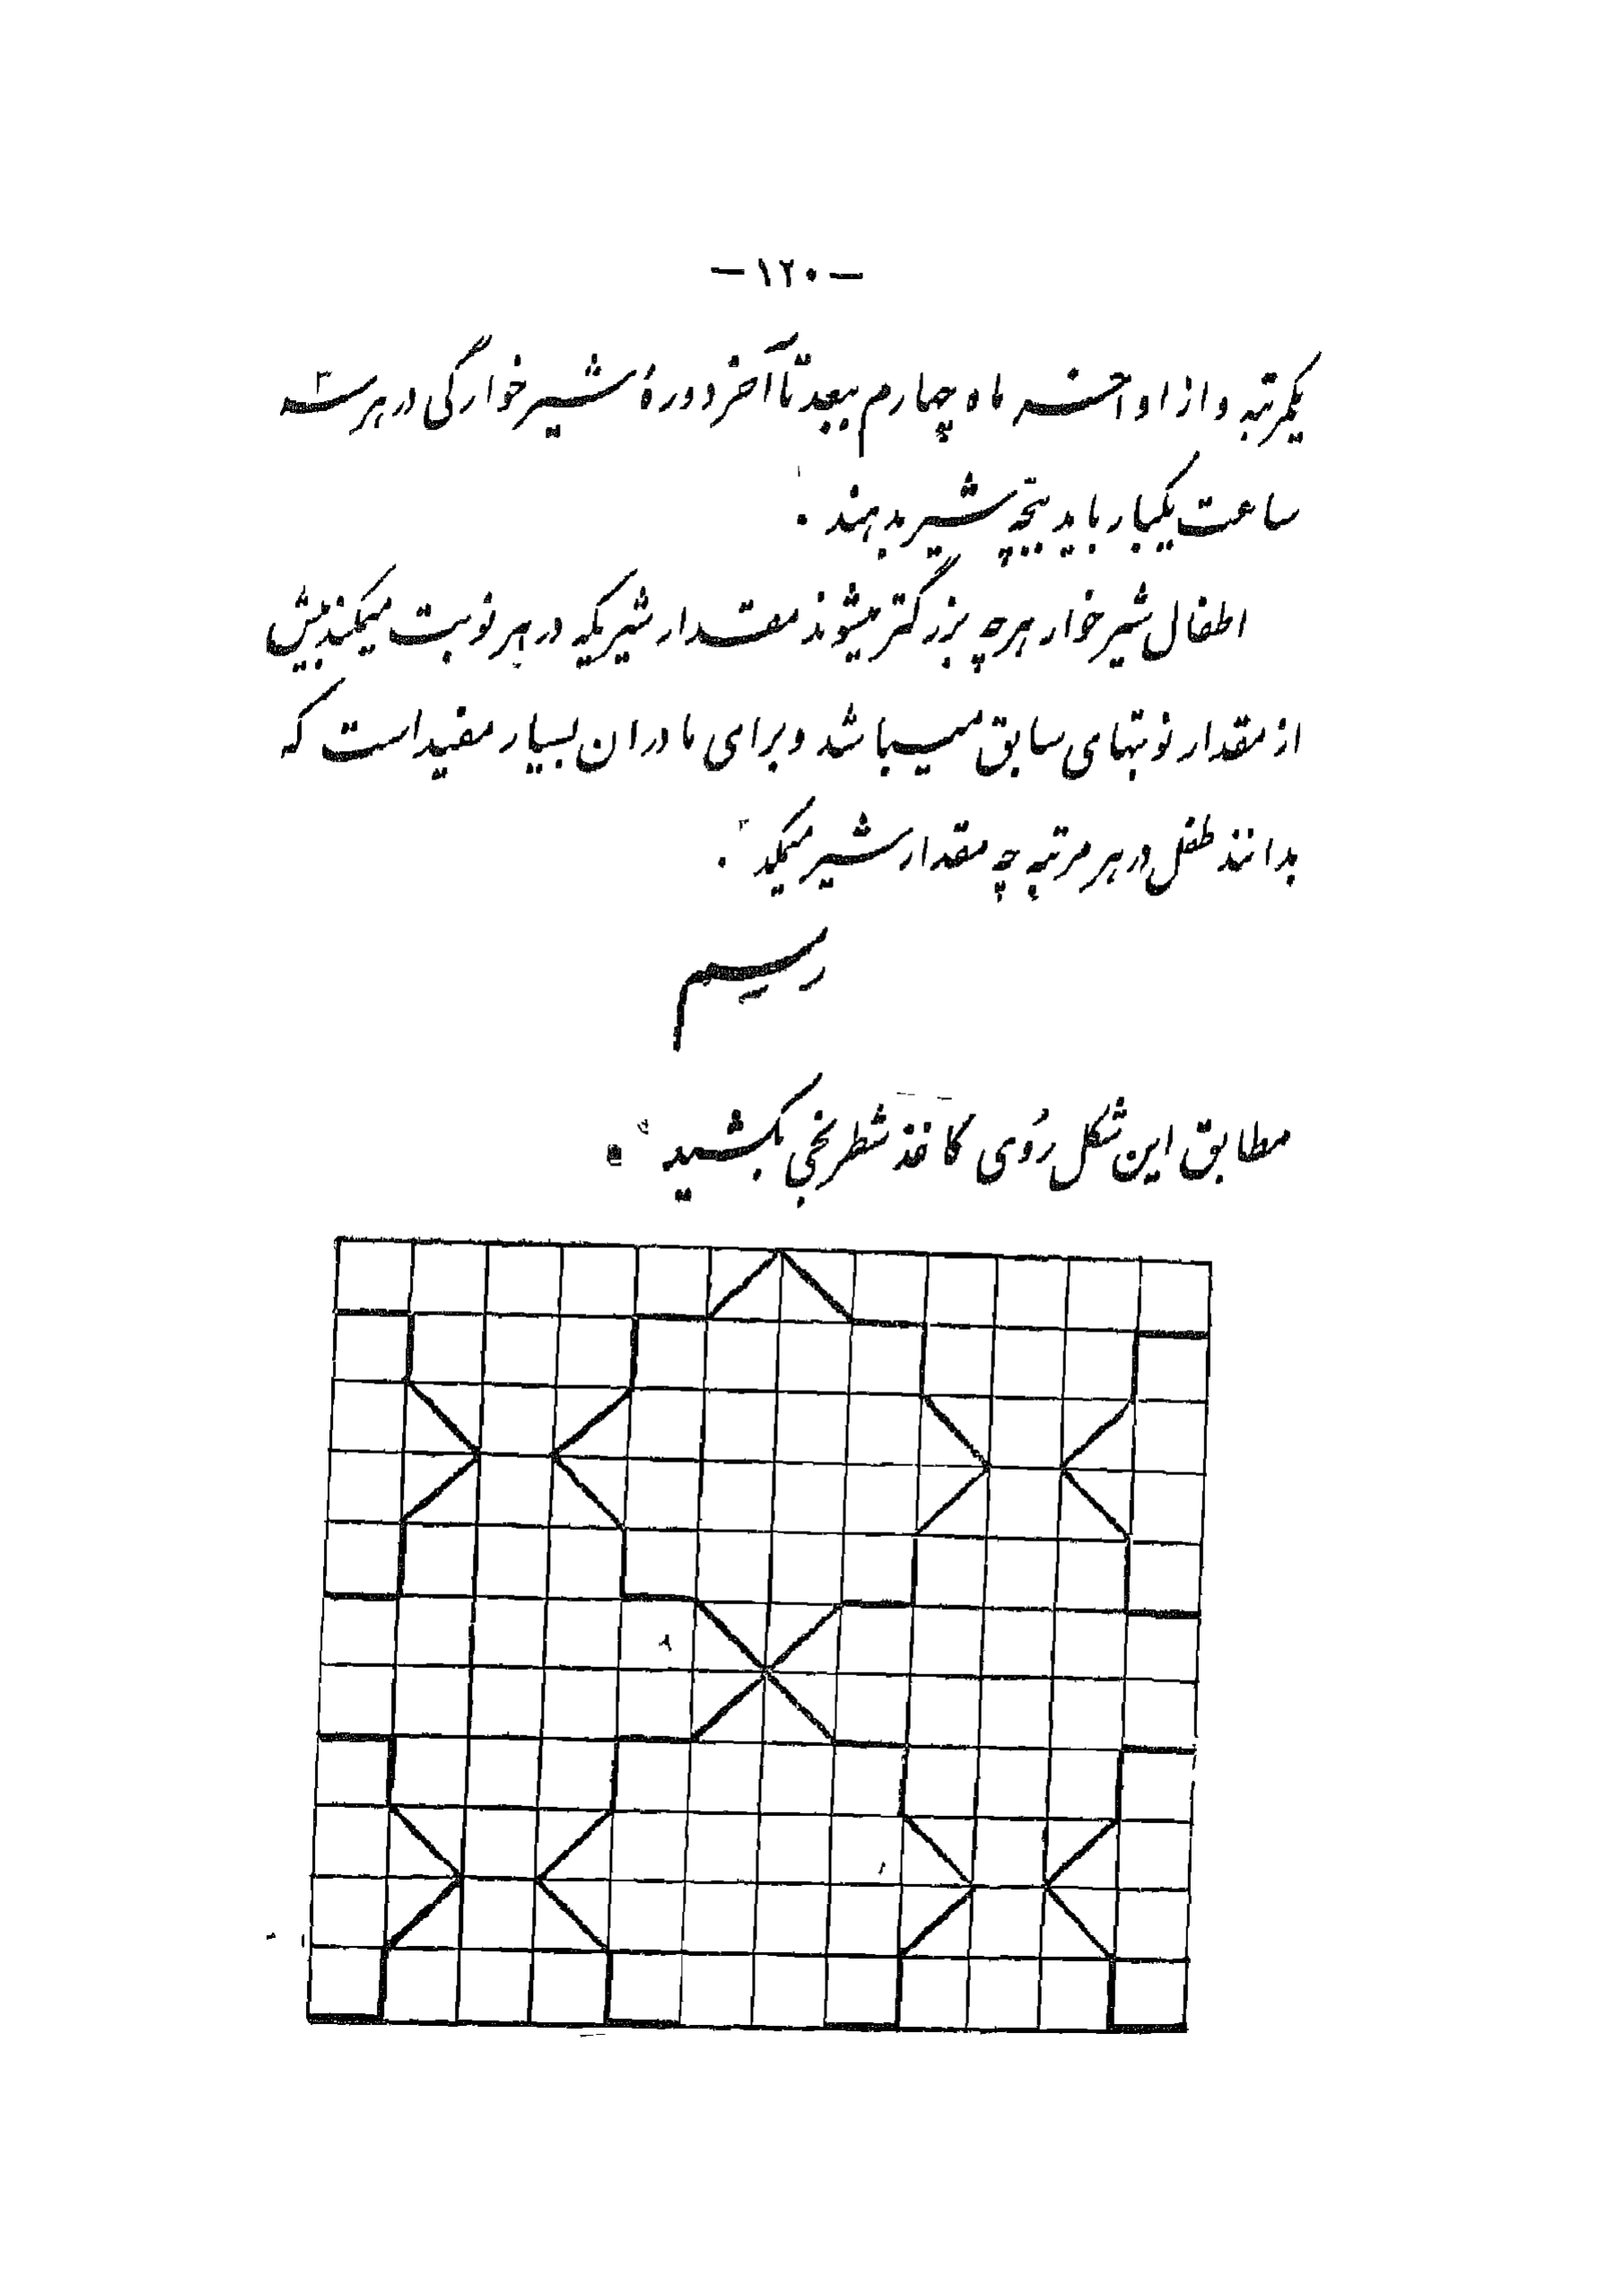 — ۱۲۰ —
یکمرتبه و از اواخر ماه چهارم ببعد تا آخر دورهٔ شیرخوارگی در هر سه
ساعت یکبار باید ببچه شیر بدهند .
اطفال شیرخوار هرچه بزرگتر میشوند مقدار شیریکه در هر نوبت میمکند بیش
از مقدار نوبتهای سابق میباشد و برای مادران بسیار مفید است که
بدانند طفل در هر مرتبه چه مقدار شیر میمکد .
رسیم
مطابق این شکل رُوی کاغذ شطرنجی بکشید .